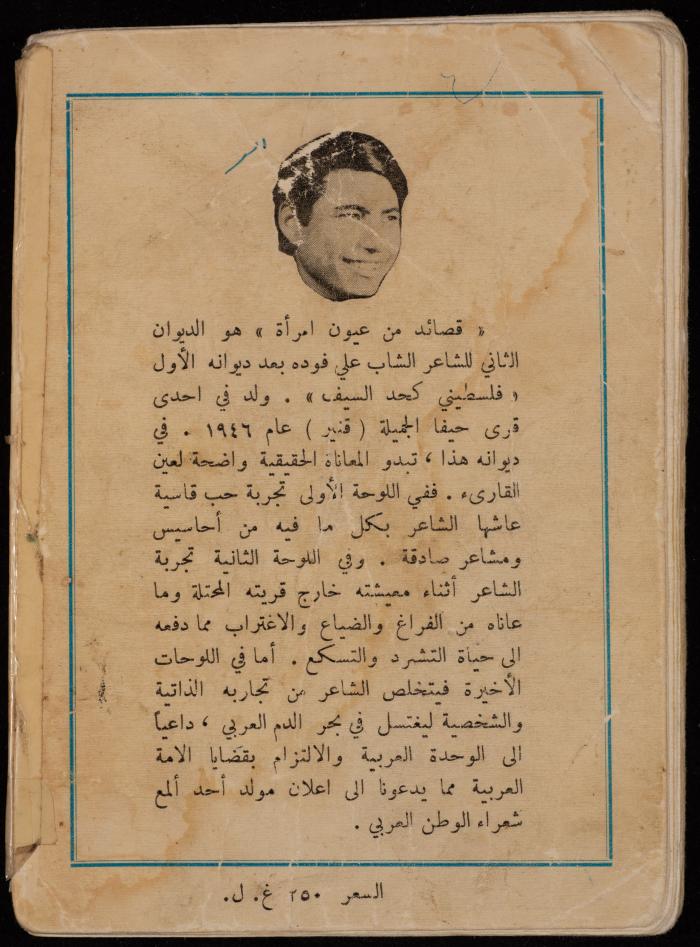 « قصائد من عيون امرأة » هو الديوان
الثاني للشاعر الشاب علي فوده بعد ديوانه الأول
« فلسطيني كحد السيف » . ولد في احدى
قرى حيفا الجميلة ( قنير ) عام ١٩٤٦ . في
ديوانه هذا ، تبدو المعاناة الحقيقية واضحة لعين
القارىء . ففي اللوحة الأولى تجربة حب قاسية
عاشها الشاعر بكل ما فيه من أحاسيس
ومشاعر صادقة . وفي اللوحة الثانية تجربة
الشاعر أثناء معيشته خارج قريته المحتلة وما
عاناه من الفراغ والضياع والاغتراب مما دفعه
الى حياة التشرد والتسكع . أما في اللوحات
الأخيرة فيتخلص الشاعر من تجاربه الذاتية
والشخصية ليغتسل في بحر الدم العربي ، داعياً
الى الوحدة العربية والالتزام بقضايا الامة
العربية مما يدعونا الى اعلان مولد أحد ألمع
شعراء الوطن العربي .
السعر ٢٥٠ غ. ل.